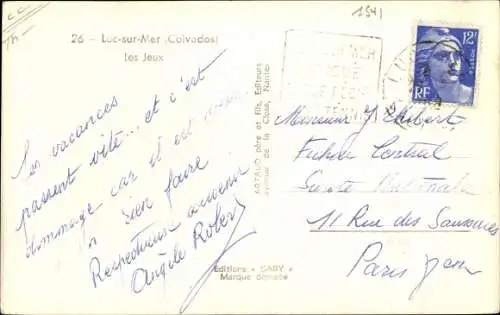 1541
26 - Luc-sur-Mer (Calvados)
Les Jeux
Les vacances
passent vite... et c'est
dommage car il est
rien faire
Respectueux souvenir
Angèle Robert
ARTAUD père et fils, Editeurs
avenue de la Close, Nantes
Editions " GABY "
Marque déposée
12F
RF
TENNIS
Monsieur J.
Fichier Central
11 Rue des Saussaies
Paris